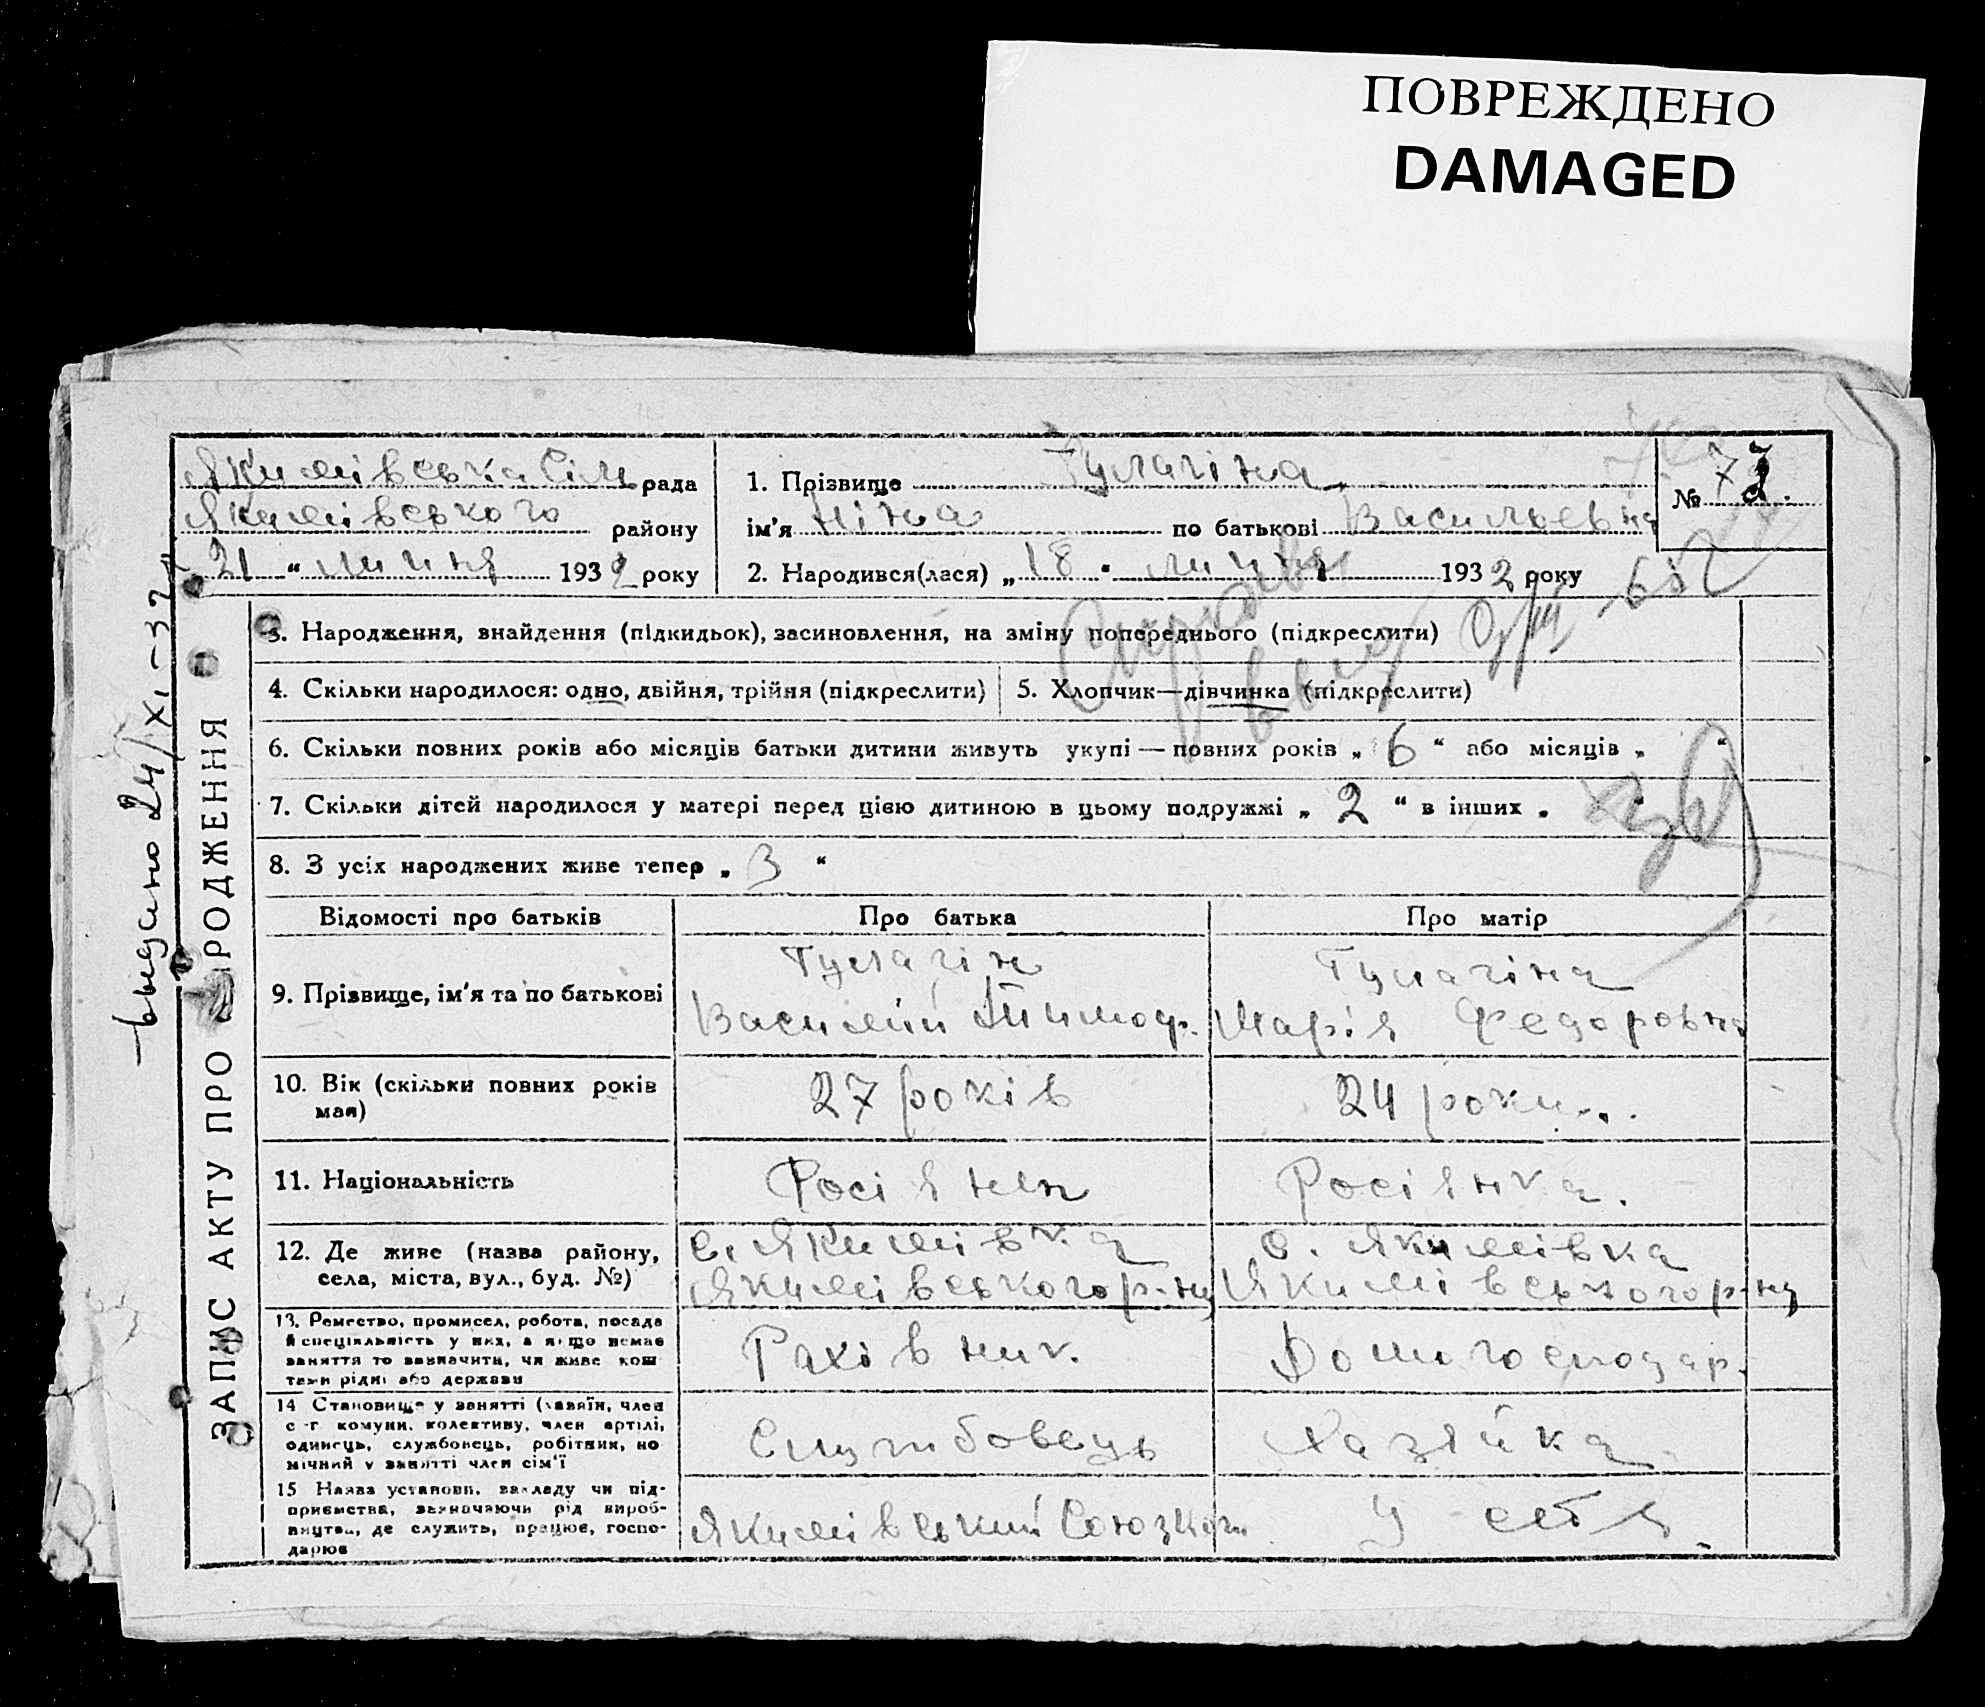 ПОВРЕЖДЕНО
DAMAGED
Якимівська Сіль рада
Якимівського району
21 " липня 1932 року
1. Прізвище Гулагіна
ім'я Ніна по батькові Васильевна
2. Народився(лася) „ 18 " липня 1932 року
№ 73.
видано 24/XI-32
ЗАПИС АКТУ ПРО РОДЖЕННЯ
3. Народження, знайдення (підкидьок), засиновлення, на зміну попереднього (підкреслити)
4. Скільки народилося: одно, двійня, трійня (підкреслити)
5. Хлопчик—дівчинка (підкреслити)
6. Скільки повних років або місяців батьки дитини живуть укупі — повних років „ 6 " або місяців „ "
7. Скільки дітей народилося у матері перед цією дитиною в цьому подружжі „ 2 " в інших „
8. З усіх народжених живе тепер „ 3 "
Відомості про батьків
Про батька
Про матір
9. Прізвище, ім'я та по батькові
Гулагін
Василій Тимоф.
Гулагіна
Марія Федоровна
10. Вік (скільки повних років
має)
27 років
24 роки...
11. Національність
Росіянен
Росіянка.
12. Де живе (назва району,
села, міста, вул., буд. №)
с. Якимівка
Якимівського р-ну
с. Якимівка
Якимівського р-ну
13. Ремество, промисел, робота, посада
й спеціяльність у них, а якщо немає
заняття то зазначити, чи живе кош
тами рідні або держави
Рахівник.
Домогосподар.
14 Становище у занятті (хазяїн, член
с-г комуни, колективу, член артілі,
одинець, службовець, робітник, по
мічний у занятті член сім'ї
Службовець
Хазяйка
15 Назва установи, закладу чи під-
приємства, зазначаючи рід вироб-
ництва, де служить, працює, госпо-
дарює
Якимівський
У себя